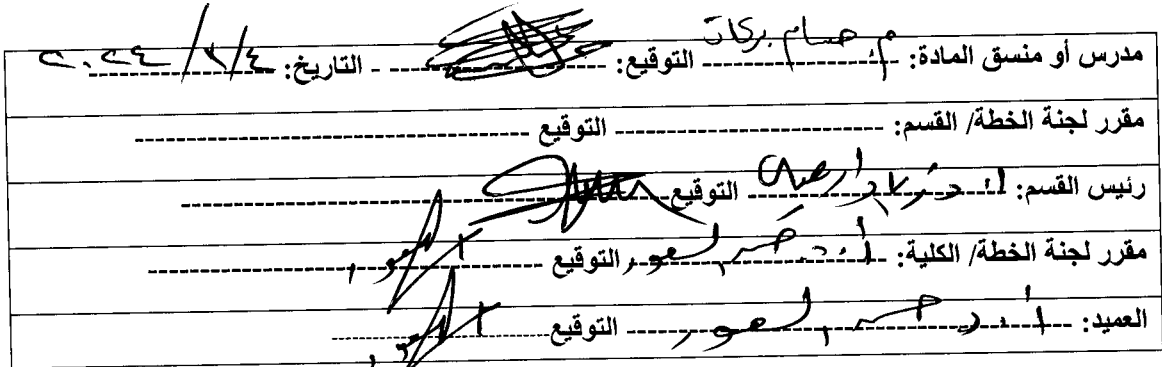 مدرس أو منسق المادة: م. حسام بركات التوقيع: - التاريخ: ٢٠٢٤/٣/٤
مقرر لجنة الخطة/ القسم: التوقيع
رئيس القسم: أ.د. التوقيع
مقرر لجنة الخطة/ الكلية: أ.د. التوقيع
العميد: أ.د. التوقيع